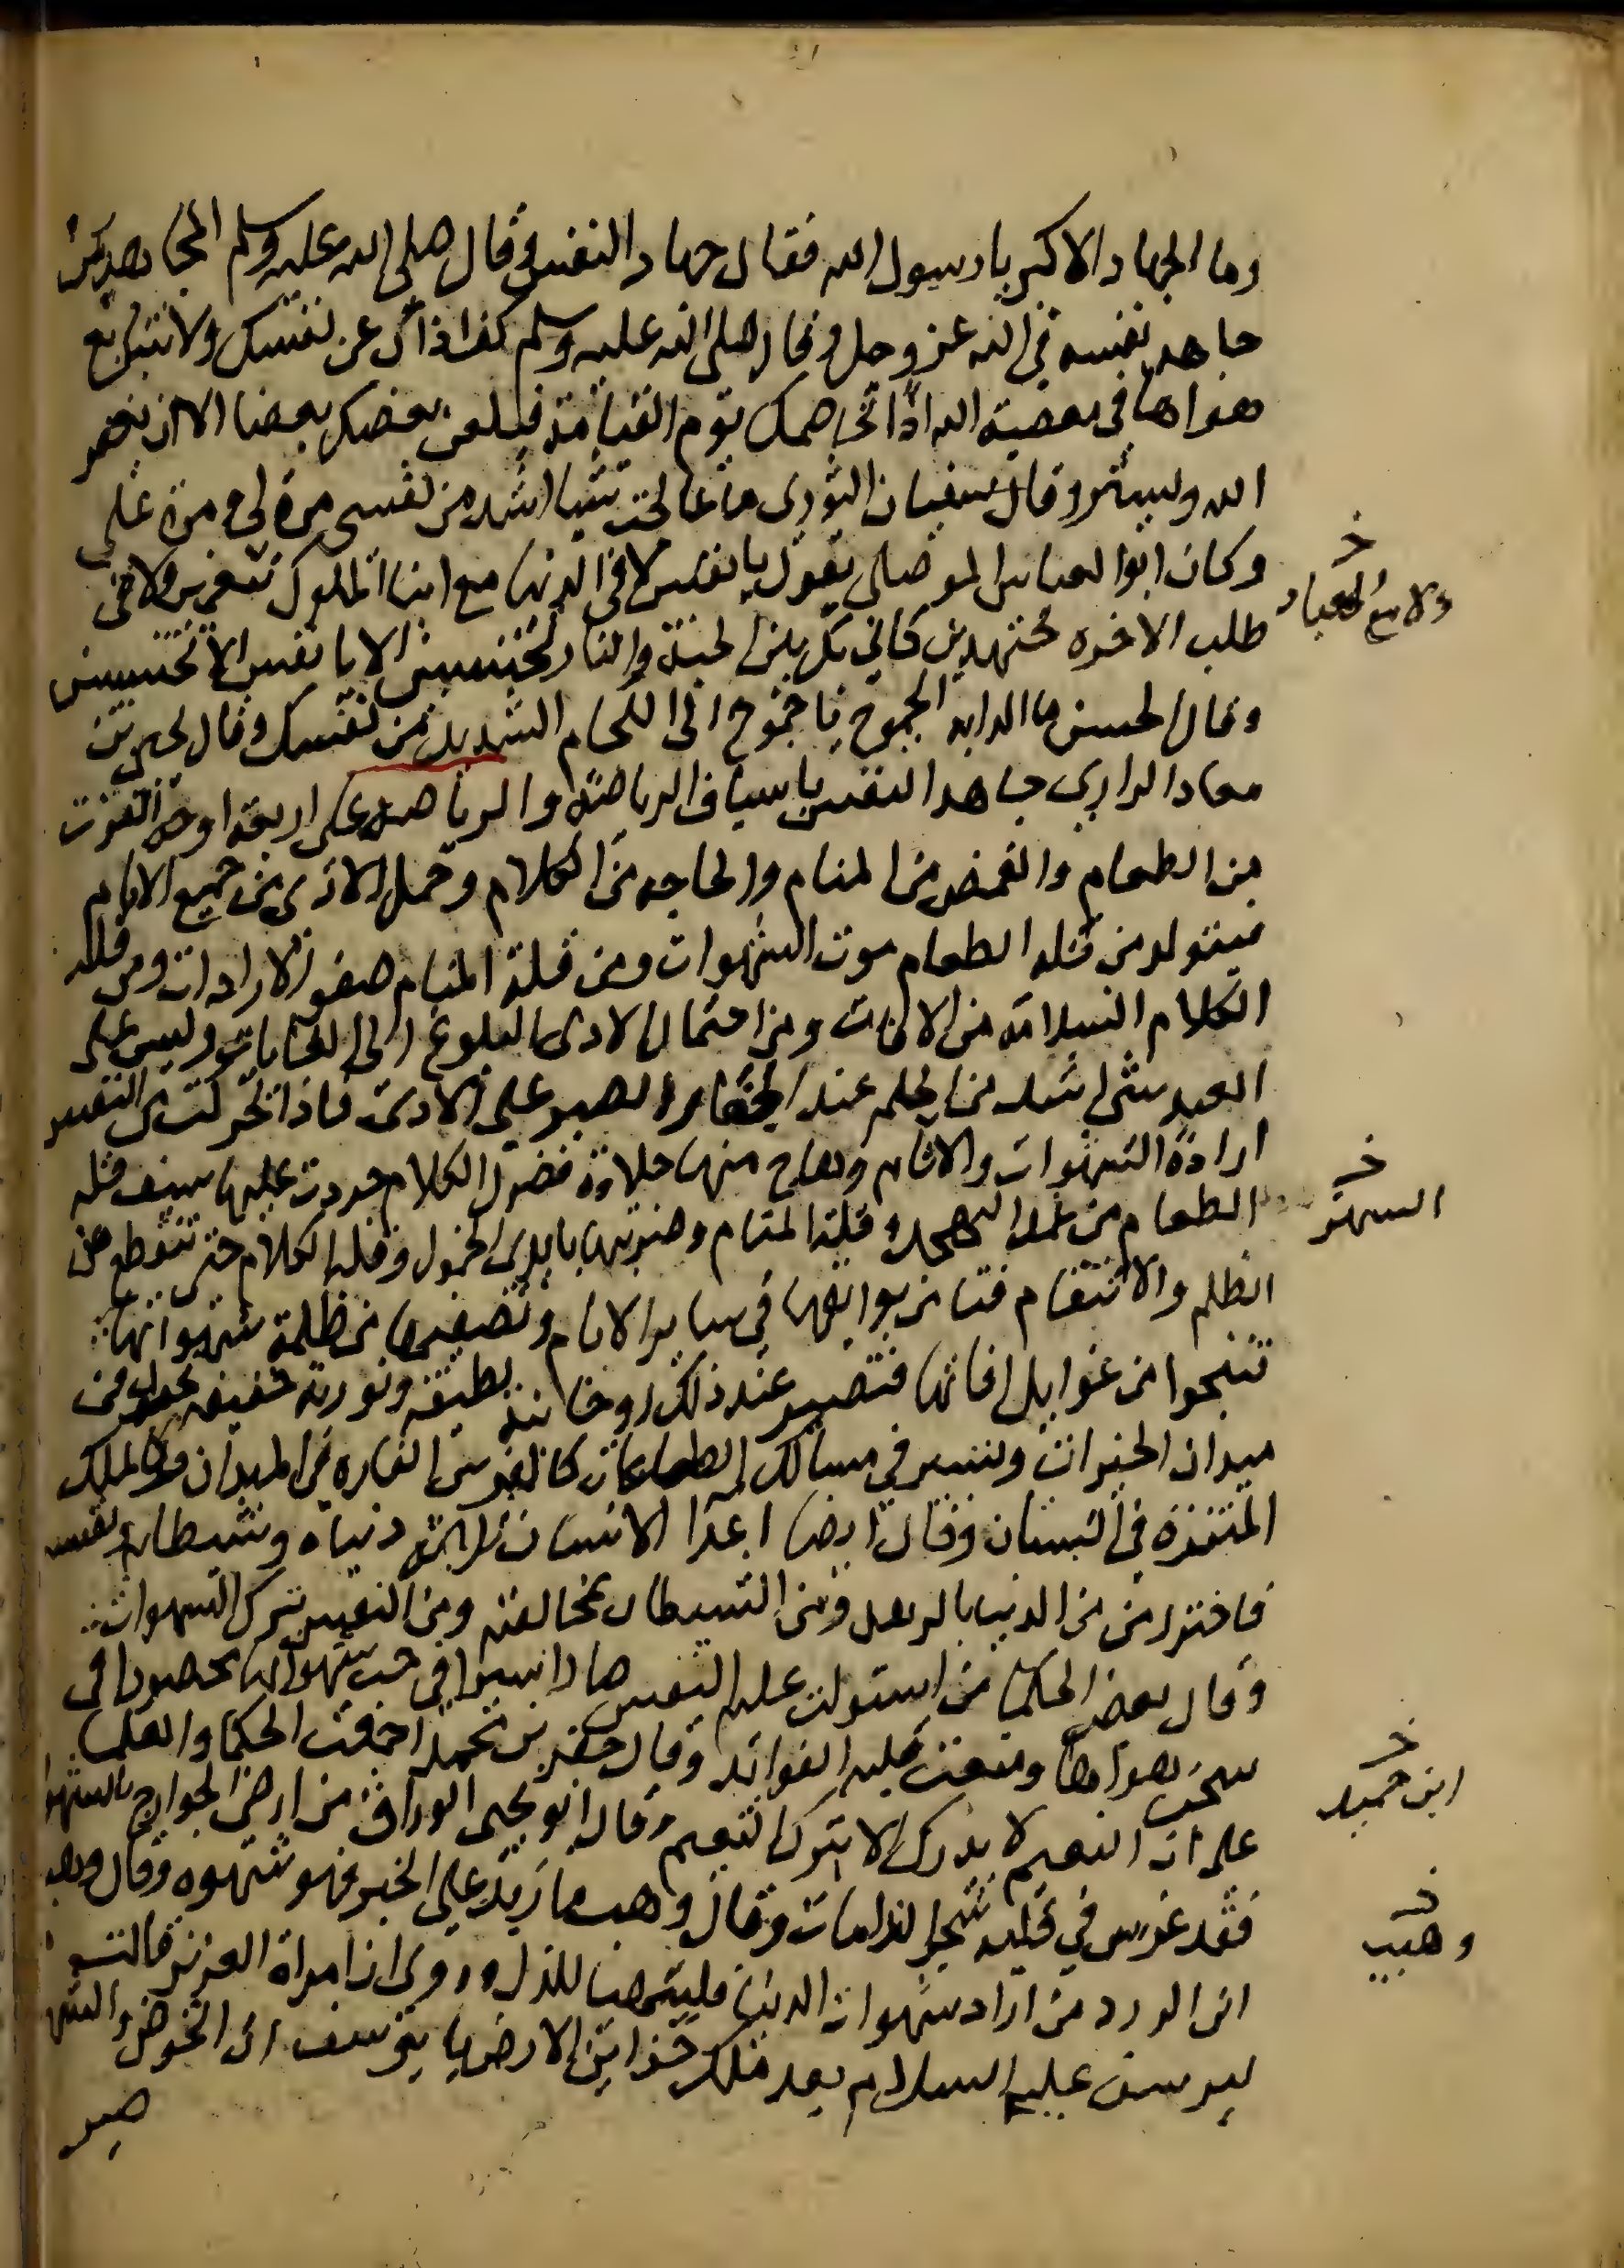 وما الجهاد الاكبر يا رسول الله فقال جهاد النفس وقال صلى الله عليه وسلم المجاهد من
جاهد نفسه في الله عز وجل وقال صلى الله عليه وسلم كف اذاك عن نفسك ولا تتابع
هواها في معصية الله اذا تخاصمك يوم القيامة فيلعن بعضك بعضا الا ان يغفر
الله ويستر وقال سفيان الثوري ما عالجت شيا اشد من نفسي مرة لي ومرة علي
وكان ابو العباس الموصلي يقول يا نفس لا في الدنيا مع ابناء الملوك تتنعمين ولا في
طلب الاخره مجتهدين كاني بك بين الجنة والنار تحبسين الا يا نفس الا تستحين
وقال الحسن ما الدابه الجموح باحوج الى اللجام الشديد من نفسك وقال يحيى بن
معاذ الرازي جاهد النفس باسياف الرياضة والرياضه على اربعة اوجه القوت
من الطعام والغمض من المنام والحاجه من الكلام وحمل الاذى من جميع الانام
فيتولد من قلة الطعام موت الشهوات ومن قلة المنام صفو الارادات ومن قلة
الكلام السلامة من الافات ومن احتمال الاذى البلوغ الى الغايات وليس على
العبد شي اشد من الحلم عند الجفا والصبر على الاذى فاذا تحركت من النفس
ارادة الشهوات والاثام وهاج منها حلاوة فضول الكلام جردت عليها سيف قلة
الطعام من غمد التهجد وقلة المنام وضربتها بايدي الخمول وقلة الكلام حتى تنقطع عن
الظلم والانتقام فتامن بوايقها في ساير الانام وتصفيها من ظلمة شهواتها
فتنجوا من غوايل افاتها فتصير عند ذلك روحانية لطيفة ونورية خفيفة فتجول في
ميدان الخيرات وتسير في مسالك الطاعات كالفرس الفاره في الميدان وكالملك
المتنزه في البستان وقال ايضا اعدا الانسان ثلاثة دنياه وشيطانه ونفسه
فاحترز من الدنيا بالزهد ومن الشيطان بمخالفته ومن النفس بترك الشهوات
وقال بعض الحكما من استولت عليه النفس صار اسيرا في حب شهواتها محصورا في
سجن هواها ومنعت قلبه الفوائد وقال جعفر بن محمد اجمعت الحكما والعلما
على ان النعيم لا يدرك الا بترك النعيم وقال ابو يحيى الوراق من ارضى الجوارح بالشهوا
فقد غرس في قلبه شجر الندامات وقال وهب ما زيد على الخبز فهو شهوه وقال وهب
ابن الورد من اراد شهوات الدنيا فليتهيا للذل وروى ان امراة العزيز قالت
ليوسف عليه السلام بعد ملك خزاين الارض يا يوسف ان الحرص والشه
صير
خ
ولا مع العباد
خ
السهر
خ
ابن حميد
خ
وهيب